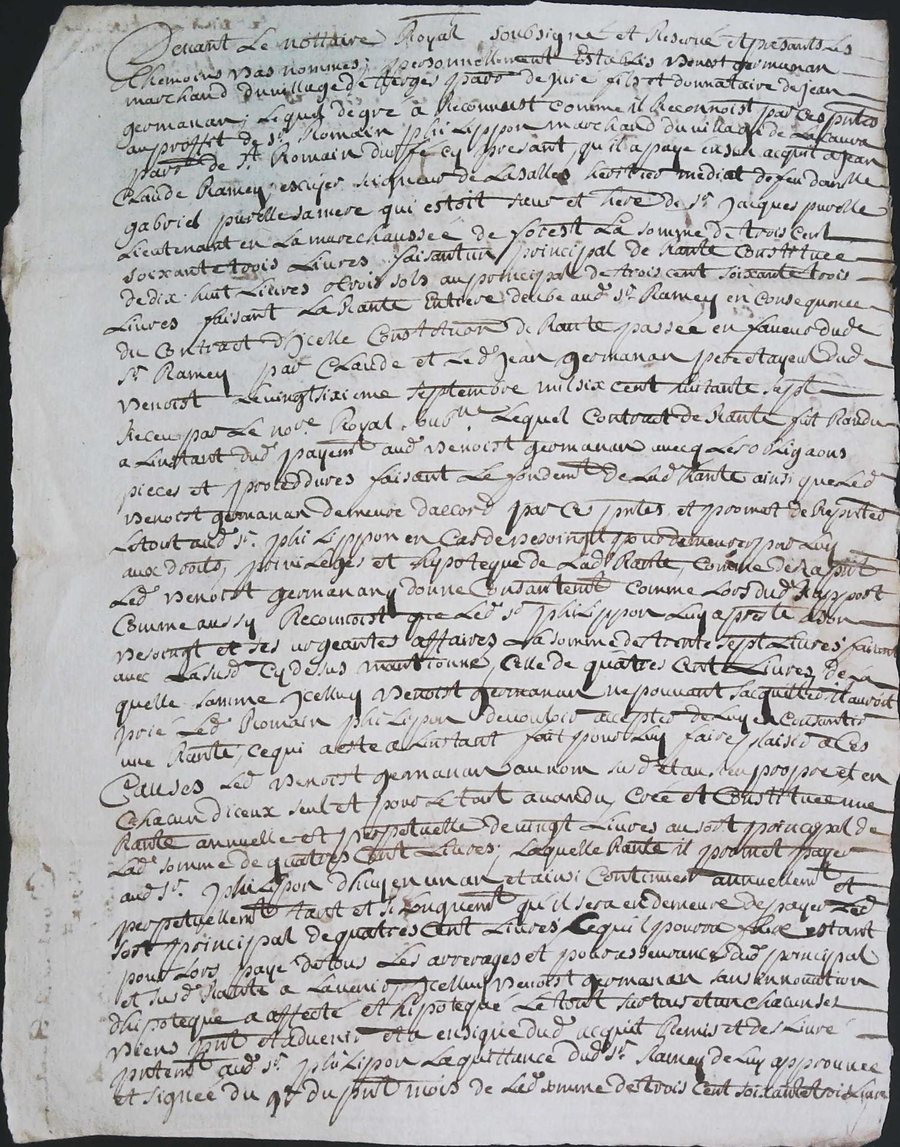 Devant Le nottaire Royal soubsigné et Reservé et presants Les
thémoins bas nommés, personnellement Establis Benoist germanan
marchand du village de parr. de fils et donnataire de jean
germanan, Lequel de gré à Reconnust Comme il Reconnoist par Ces pntes
au proffit de Sr. Romain philippon marchand du village de
parr. de St. Romain Cy presant, qu'il a payé en son acquit a jean
Claude Ramey escuyer seigneur de Lasalles heritier mediat de feu
gabriel purelle sa mere qui estoit sœur et here de Sr. Jacques purelle
Lieutenant en La marechaussée de forest La somme de trois cent
soixante trois Livres faisant un principal de Rante Constituée
de dix huit Livres trois sols au principal de trois cent soixante trois
Livres faisant La Rante Entiere deube aud. Sr. Ramey en Consequence
du Contract d'Jcelle Constitution de Rante passée en faveur dud.
Sr. Ramey par Claude et Led. Jean germanan pere et ayeul dud.
Benoist Le vingt sixieme septembre mil six cent huitante sept
Receu par Le nore. Royal Lequel Contract de Rante fut Randu
a Linstant dud. payemt. aud. Benoist germanan avecq Les obligaons
pieces et proceddures faisant Le fondemt. de Lad. Rante ainsi que Led.
Benoist germanan demeure d'accord par Ces pntes. et promet de
Le tout aud. Sr. philippon en Cas de besoingt pour demeurer par Luy
aux droits, privileges et hypoteque de Lad. Rante, Comme
Led. Benoist germanan y donne Consantemt. Comme Lors dud. Rapport
Comme aussy Reconnoist que Led. Sr. philippon Luy a presté a son
besoingt et ses urgeantes affaires La somme de trente sept Livres, faisant
avec La susd. Cy dessus mentionné, Celle de quatres Cent Livres, de La
quelle somme Jcelluy Benoist germanan ne pouvant sacquitter il auroit
prié Led. Romain philippon de vouloir accepter de Luy en Consantir
une Rante, ce qui a esté a Linstant fait pour Luy faire plaisir a Ces
Causes Led. Benoist germanan au nom susd. et au sien propre et en
Chacun diceux seul et pour Le tout a vandu, Créé et Constitué une
Rante annuelle et perpetuelle de vingt Livres au sort principal de
Lad. somme de quatres Cent Livres, Laquelle Rante il promet payer
aud. Sr. philipon d'huy en un an et ainsi Continuer annuellemt. et
perpetuellemt. tant et si Longuemt. qu'il sera en demeure de payer Led.
sort principal de quatres Cent Livres Ce qu'il pourra faire estant
pour Lors payé de tous Les arrerages et pour asseurance dud. principal
et susd. Rante a Lavenir Jcelluy Benoist germanan sans innovation
d'hipoteque a affecté et hipotequé Le tout sur tous et un chacun ses
Biens pnt. et advenir et a ensigne dud. acquit Remis et deslivré
pntemt. aud. Sr. philipon La quittance dud. Sr. Ramey de Luy approuvée
et signée du 9e. du pnt. mois de Lad. somme de trois Cent soixante trois Livres